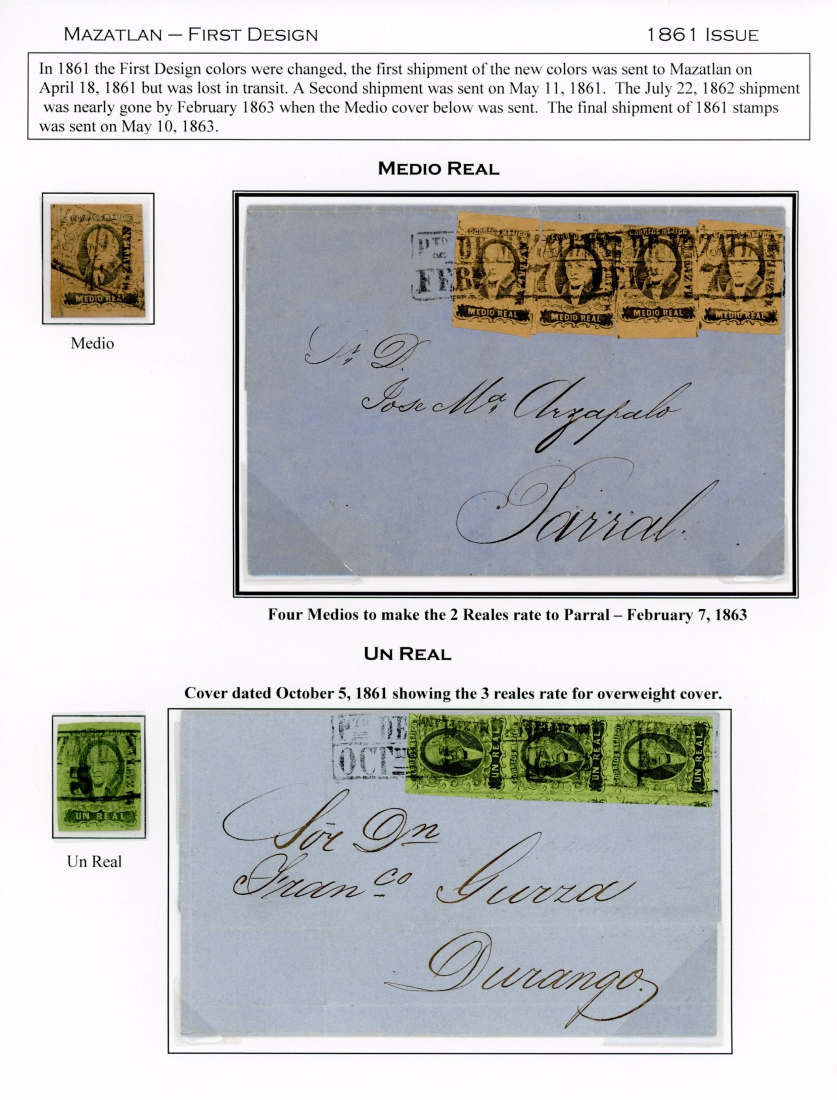 MAZATLAN – FIRST DESIGN
1861 ISSUE
In 1861 the First Design colors were changed, the first shipment of the new colors was sent to Mazatlan on
April 18, 1861 but was lost in transit. A Second shipment was sent on May 11, 1861. The July 22, 1862 shipment
was nearly gone by February 1863 when the Medio cover below was sent. The final shipment of 1861 stamps
was sent on May 10, 1863.
MEDIO REAL
MAZATLAN
MEDIO REAL
Medio
CORREOS MEJICO
PTO DE MAZATLAN DE MAZATLAN
FEB 7 7
MAZATLAN
MEDIO REAL
MEDIO REAL
MEDIO REAL
MEDIO REAL
Sr. D.
Jose Ma. Arzapalo
Parral.
Four Medios to make the 2 Reales rate to Parral – February 7, 1863
UN REAL
Cover dated October 5, 1861 showing the 3 reales rate for overweight cover.
UN REAL
Un Real
PTO DE
OCT
UN REAL
UN REAL
UN REAL
Sōr Dn
Franco Gurza
Durango.